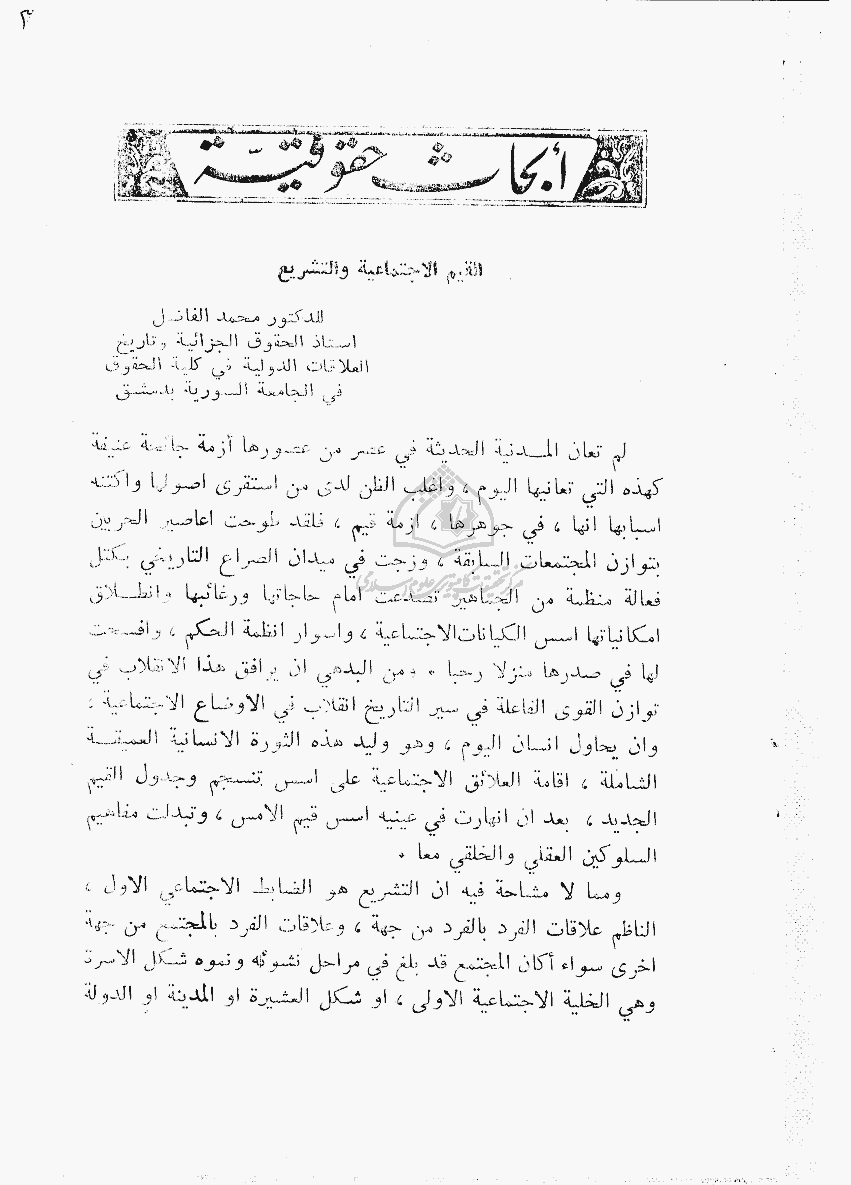 ٣
أبحاث حقوقية
القيم الاجتماعية والتشريع
للدكتور محمد الفاضل
استاذ الحقوق الجزائية وتاريخ
العلاقات الدولية في كلية الحقوق
في الجامعة السورية بدمشق
لم تعان المدنية الحديثة في عصر من عصورها أزمة جائحة عنيفة
كهذه التي تعانيها اليوم ، واغلب الظن لدى من استقرى اصولها واكتنه
اسبابها انها ، في جوهرها ، ازمة قيم ، فلقد طوحت اعاصير الحربين
بتوازن المجتمعات السابقة ، وزجت في ميدان الصراع التاريخي بكتل
فعالة منظمة من الجماهير تصدعت أمام حاجاتها ورغائبها وانطلاق
امكانياتها اسس الكيانات الاجتماعية ، واسوار انظمة الحكم ، وافسحت
لها في صدرها منزلا رحبا ٠ ومن البدهي ان يرافق هذا الانقلاب في
توازن القوى الفاعلة في سير التاريخ انقلاب في الاوضاع الاجتماعية ،
وان يحاول انسان اليوم ، وهو وليد هذه الثورة الانسانية العميقة
الشاملة ، اقامة العلائق الاجتماعية على اسس تنسجم وجدول القيم
الجديد ، بعد ان انهارت في عينيه اسس قيم الامس ، وتبدلت مفاهيم
السلوكين العقلي والخلقي معا ٠
ومما لا مشاحة فيه ان التشريع هو الضابط الاجتماعي الاول ،
الناظم علاقات الفرد بالفرد من جهة ، وعلاقات الفرد بالمجتمع من جهة
اخرى سواء أكان المجتمع قد بلغ في مراحل نشوئه ونموه شكل الاسرة
وهي الخلية الاجتماعية الاولى ، او شكل العشيرة او المدينة او الدولة
مرکز تحقیقات کامپیوتری علوم اسلامی